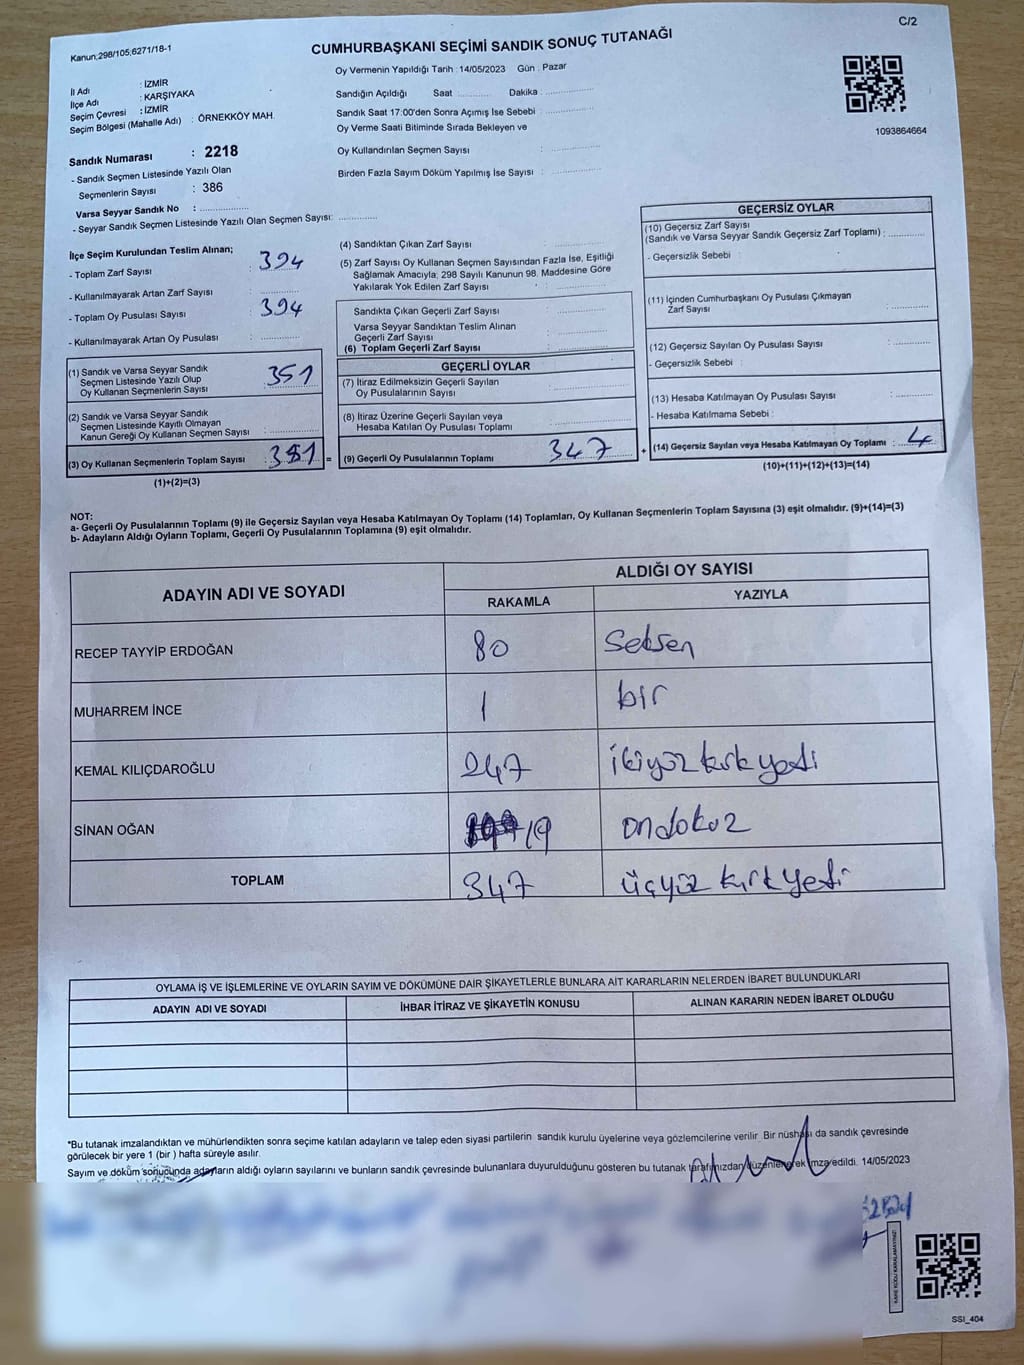 C/2
Kanun:298/105,6271/18-1
CUMHURBAŞKANI SEÇİMİ SANDIK SONUÇ TUTANAĞI
İl Adı : İZMİR
İlçe Adı : KARŞIYAKA
Seçim Çevresi : İZMİR
Seçim Bölgesi (Mahalle Adı) : ÖRNEKKÖY MAH.
Sandık Numarası : 2218
- Sandık Seçmen Listesinde Yazılı Olan
Seçmenlerin Sayısı : 386
Varsa Seyyar Sandık No :
- Seyyar Sandık Seçmen Listesinde Yazılı Olan Seçmen Sayısı:
Oy Vermenin Yapıldığı Tarih : 14/05/2023 Gün : Pazar
Sandığın Açıldığı Saat Dakika :
Sandık Saat 17:00'den Sonra Açımış İse Sebebi :
Oy Verme Saati Bitiminde Sırada Bekleyen ve
Oy Kullandırılan Seçmen Sayısı :
Birden Fazla Sayım Döküm Yapılmış İse Sayısı :
1093864664
İlçe Seçim Kurulundan Teslim Alınan;
- Toplam Zarf Sayısı : 394
- Kullanılmayarak Artan Zarf Sayısı :
- Toplam Oy Pusulası Sayısı : 394
- Kullanılmayarak Artan Oy Pusulası :
(1) Sandık ve Varsa Seyyar Sandık
Seçmen Listesinde Yazılı Olup
Oy Kullanan Seçmenlerin Sayısı : 351
(2) Sandık ve Varsa Seyyar Sandık
Seçmen Listesinde Kayıtlı Olmayan
Kanun Gereği Oy Kullanan Seçmen Sayısı :
(3) Oy Kullanan Seçmenlerin Toplam Sayısı : 351 =
(1)+(2)=(3)
(4) Sandıktan Çıkan Zarf Sayısı :
(5) Zarf Sayısı Oy Kullanan Seçmen Sayısından Fazla İse, Eşitliği
Sağlamak Amacıyla; 298 Sayılı Kanunun 98. Maddesine Göre
Yakılarak Yok Edilen Zarf Sayısı :
Sandıkta Çıkan Geçerli Zarf Sayısı :
Varsa Seyyar Sandıktan Teslim Alınan
Geçerli Zarf Sayısı :
(6) Toplam Geçerli Zarf Sayısı :
GEÇERLİ OYLAR
(7) İtiraz Edilmeksizin Geçerli Sayılan
Oy Pusulalarının Sayısı :
(8) İtiraz Üzerine Geçerli Sayılan veya
Hesaba Katılan Oy Pusulası Toplamı :
(9) Geçerli Oy Pusulalarının Toplamı 347 +
GEÇERSİZ OYLAR
(10) Geçersiz Zarf Sayısı
(Sandık ve Varsa Seyyar Sandık Geçersiz Zarf Toplamı) :
- Geçersizlik Sebebi :
(11) İçinden Cumhurbaşkanı Oy Pusulası Çıkmayan
Zarf Sayısı :
(12) Geçersiz Sayılan Oy Pusulası Sayısı :
- Geçersizlik Sebebi :
(13) Hesaba Katılmayan Oy Pusulası Sayısı :
- Hesaba Katılmama Sebebi :
(14) Geçersiz Sayılan veya Hesaba Katılmayan Oy Toplamı : 4
(10)+(11)+(12)+(13)=(14)
NOT:
a- Geçerli Oy Pusulalarının Toplamı (9) ile Geçersiz Sayılan veya Hesaba Katılmayan Oy Toplamı (14) Toplamları, Oy Kullanan Seçmenlerin Toplam Sayısına (3) eşit olmalıdır. (9)+(14)=(3)
b- Adayların Aldığı Oyların Toplamı, Geçerli Oy Pusulalarının Toplamına (9) eşit olmalıdır.
ADAYIN ADI VE SOYADI ALDIĞI OY SAYISI
RAKAMLA YAZIYLA
RECEP TAYYİP ERDOĞAN 80 Seksen
MUHARREM İNCE 1 bir
KEMAL KILIÇDAROĞLU 247 ikiyüz kırk yedi
SİNAN OĞAN 19 ondokuz
TOPLAM 347 üçyüz kırk yedi
OYLAMA İŞ VE İŞLEMLERİNE VE OYLARIN SAYIM VE DÖKÜMÜNE DAİR ŞİKAYETLERLE BUNLARA AİT KARARLARIN NELERDEN İBARET BULUNDUKLARI
ADAYIN ADI VE SOYADI İHBAR İTİRAZ VE ŞİKAYETİN KONUSU ALINAN KARARIN NEDEN İBARET OLDUĞU
*Bu tutanak imzalandıktan ve mühürlendikten sonra seçime katılan adayların ve talep eden siyasi partilerin sandık kurulu üyelerine veya gözlemcilerine verilir. Bir nüshası da sandık çevresinde
görülecek bir yere 1 (bir ) hafta süreyle asılır.
Sayım ve döküm sonucunda adayların aldığı oyların sayılarını ve bunların sandık çevresinde bulunanlara duyurulduğunu gösteren bu tutanak tarafımızdan düzenlenerek imza edildi. 14/05/2023
SSI_404